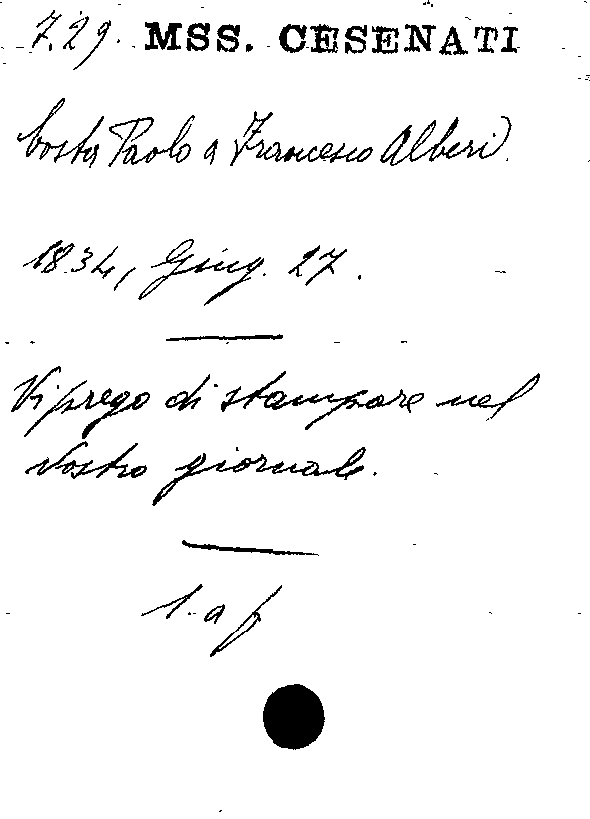 729. MSS. CESENATI
Costa Paolo a Francesco Alberi.
1834, Giug. 27.
Vi prego di stampare nel
vostro giornale.
1. a f